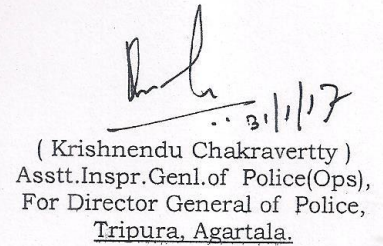 31/1/17
( Krishnendu Chakravertty )
Asstt.Inspr.Genl.of Police(Ops),
For Director General of Police,
Tripura, Agartala.